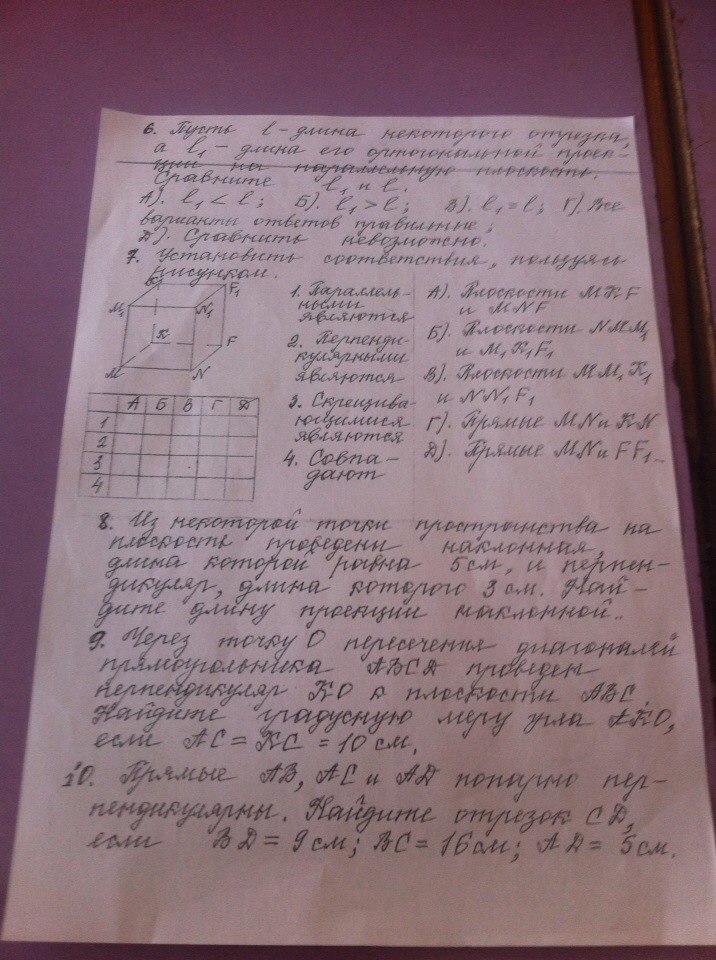 6. Пусть l - длина некоторого отрезка,
а l₁ - длина его ортогональной проек-
ции на параллельную плоскость.
Сравните l₁ и l.
А). l₁ < l; Б). l₁ > l; В). l₁ = l; Г). Все
варианты ответов правильные;
Д). Сравнить невозможно.
7. Установить соответствия, пользуясь
рисунком.
F₁
M₁
N₁
K
F
M
N
1. Параллель-
ными
являются
2. Перпенди-
кулярными
являются
3. Скрещива-
ющимися
являются
4. Совпа-
дают
А). Плоскости MKF
и MNF
Б). Плоскости NMM₁
и M₁K₁F₁
В). Плоскости MM₁K₁
и NN₁F₁
Г). Прямые MN и KN
Д). Прямые MN и FF₁
А Б В Г Д
1
2
3
4
8. Из некоторой точки пространства на
плоскость проведены наклонная,
длина которой равна 5см, и перпен-
дикуляр, длина которого 3 см. Най-
дите длину проекции наклонной..
9. Через точку O пересечения диагоналей
прямоугольника ABCD проведен
перпендикуляр KO к плоскости ABC.
Найдите градусную меру угла AKO,
если AC = KC = 10 см.
10. Прямые AB, AC и AD попарно пер-
пендикулярны. Найдите отрезок CD,
если BD = 9 см; BC = 16 см; AD = 5 см.